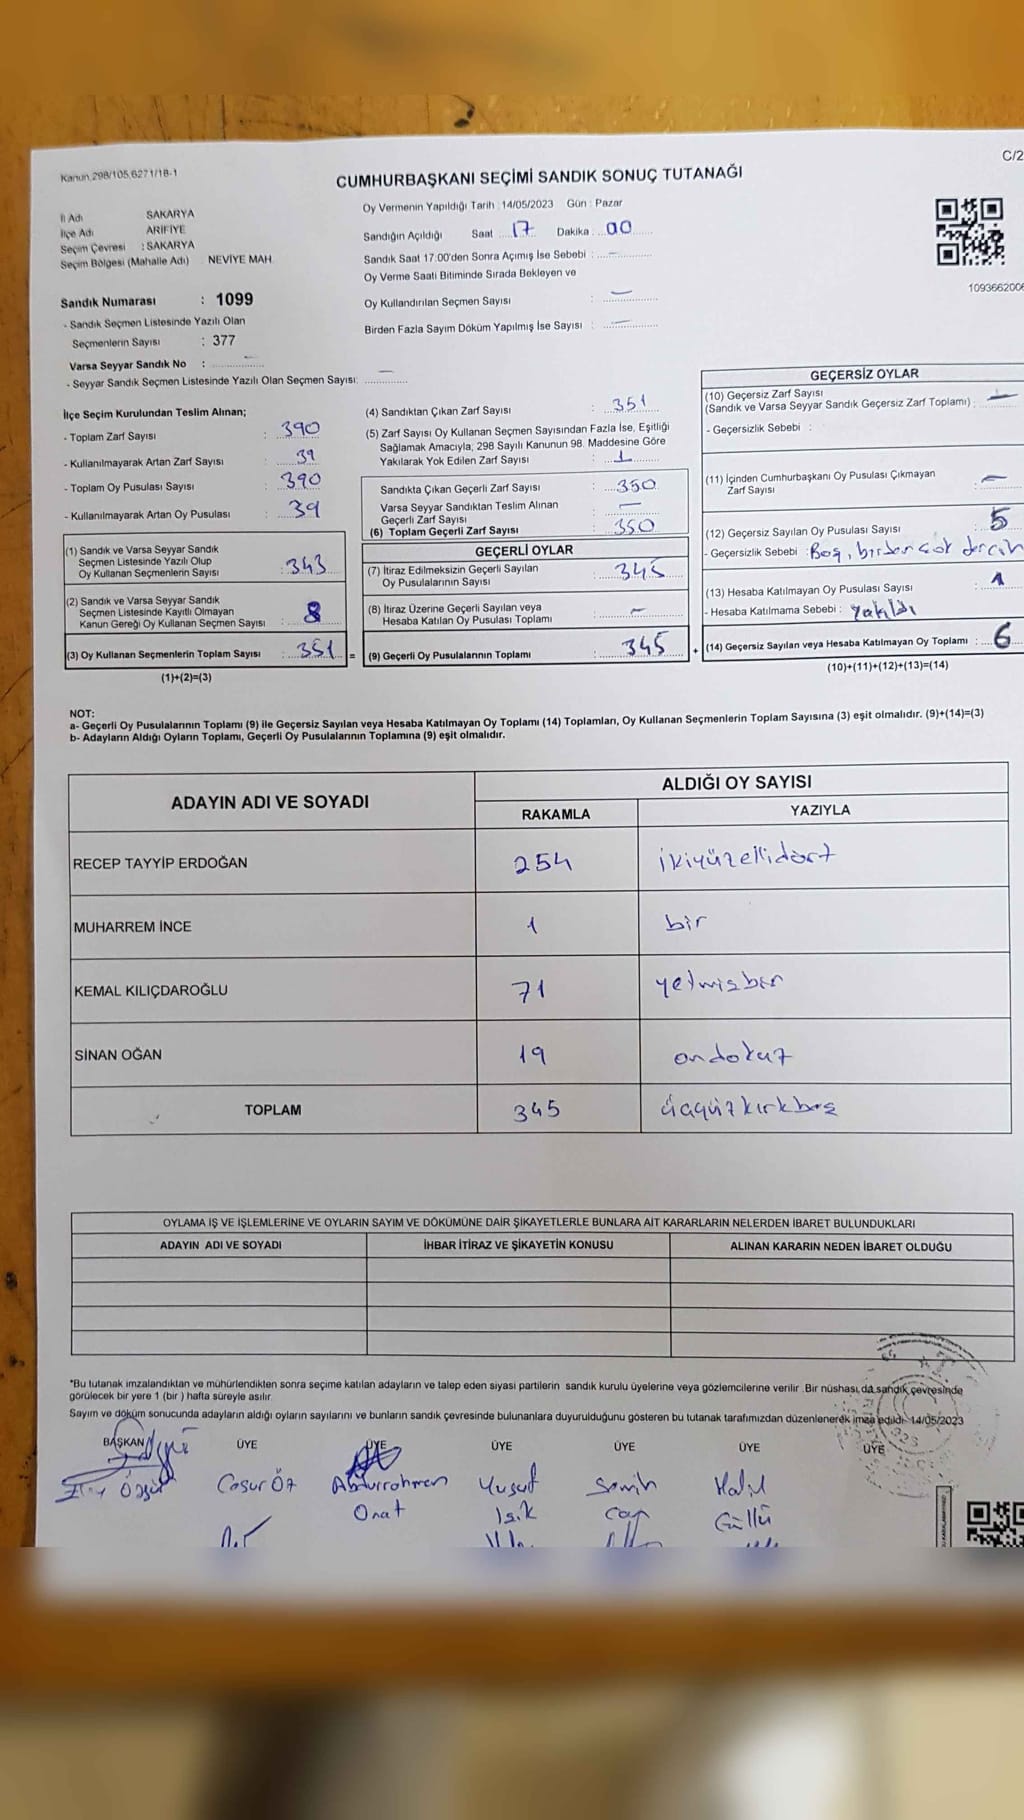 Kanun 298/105,6271/18-1
C/2
CUMHURBAŞKANI SEÇİMİ SANDIK SONUÇ TUTANAĞI
İl Adı SAKARYA
İlçe Adı ARİFİYE
Seçim Çevresi : SAKARYA
Seçim Bölgesi (Mahalle Adı) NEVİYE MAH.
Oy Vermenin Yapıldığı Tarih : 14/05/2023 Gün : Pazar
Sandığın Açıldığı Saat 17 Dakika 00
Sandık Saat 17:00'den Sonra Açılmış İse Sebebi : —
Oy Verme Saati Bitiminde Sırada Bekleyen ve
Oy Kullandırılan Seçmen Sayısı : —
Birden Fazla Sayım Döküm Yapılmış İse Sayısı : —
1093662006
Sandık Numarası : 1099
- Sandık Seçmen Listesinde Yazılı Olan
Seçmenlerin Sayısı : 377
Varsa Seyyar Sandık No : —
- Seyyar Sandık Seçmen Listesinde Yazılı Olan Seçmen Sayısı: —
İlçe Seçim Kurulundan Teslim Alınan;
- Toplam Zarf Sayısı : 390
- Kullanılmayarak Artan Zarf Sayısı : 39
- Toplam Oy Pusulası Sayısı : 390
- Kullanılmayarak Artan Oy Pusulası : 39
(1) Sandık ve Varsa Seyyar Sandık
Seçmen Listesinde Yazılı Olup
Oy Kullanan Seçmenlerin Sayısı : 343
(2) Sandık ve Varsa Seyyar Sandık
Seçmen Listesinde Kayıtlı Olmayan
Kanun Gereği Oy Kullanan Seçmen Sayısı : 8
(3) Oy Kullanan Seçmenlerin Toplam Sayısı : 351 =
(1)+(2)=(3)
(4) Sandıktan Çıkan Zarf Sayısı : 351
(5) Zarf Sayısı Oy Kullanan Seçmen Sayısından Fazla İse, Eşitliği
Sağlamak Amacıyla; 298 Sayılı Kanunun 98. Maddesine Göre
Yakılarak Yok Edilen Zarf Sayısı : 1
Sandıkta Çıkan Geçerli Zarf Sayısı : 350
Varsa Seyyar Sandıktan Teslim Alınan
Geçerli Zarf Sayısı : —
(6) Toplam Geçerli Zarf Sayısı : 350
GEÇERLİ OYLAR
(7) İtiraz Edilmeksizin Geçerli Sayılan
Oy Pusulalarının Sayısı : 345
(8) İtiraz Üzerine Geçerli Sayılan veya
Hesaba Katılan Oy Pusulası Toplamı : —
(9) Geçerli Oy Pusulalarının Toplamı : 345 +
GEÇERSİZ OYLAR
(10) Geçersiz Zarf Sayısı
(Sandık ve Varsa Seyyar Sandık Geçersiz Zarf Toplamı) : —
- Geçersizlik Sebebi :
(11) İçinden Cumhurbaşkanı Oy Pusulası Çıkmayan
Zarf Sayısı : —
(12) Geçersiz Sayılan Oy Pusulası Sayısı : 5
- Geçersizlik Sebebi : Boş, birden çok tercih
(13) Hesaba Katılmayan Oy Pusulası Sayısı : 1
- Hesaba Katılmama Sebebi : Yakıldı
(14) Geçersiz Sayılan veya Hesaba Katılmayan Oy Toplamı : 6
(10)+(11)+(12)+(13)=(14)
NOT:
a- Geçerli Oy Pusulalarının Toplamı (9) ile Geçersiz Sayılan veya Hesaba Katılmayan Oy Toplamı (14) Toplamları, Oy Kullanan Seçmenlerin Toplam Sayısına (3) eşit olmalıdır. (9)+(14)=(3)
b- Adayların Aldığı Oyların Toplamı, Geçerli Oy Pusulalarının Toplamına (9) eşit olmalıdır.
ADAYIN ADI VE SOYADI ALDIĞI OY SAYISI
RAKAMLA YAZIYLA
RECEP TAYYİP ERDOĞAN 254 ikiyüzellidört
MUHARREM İNCE 1 bir
KEMAL KILIÇDAROĞLU 71 yetmişbir
SİNAN OĞAN 19 ondokuz
TOPLAM 345 üçyüzkırkbeş
OYLAMA İŞ VE İŞLEMLERİNE VE OYLARIN SAYIM VE DÖKÜMÜNE DAİR ŞİKAYETLERLE BUNLARA AİT KARARLARIN NELERDEN İBARET BULUNDUKLARI
ADAYIN ADI VE SOYADI İHBAR İTİRAZ VE ŞİKAYETİN KONUSU ALINAN KARARIN NEDEN İBARET OLDUĞU
*Bu tutanak imzalandıktan ve mühürlendikten sonra seçime katılan adayların ve talep eden siyasi partilerin sandık kurulu üyelerine veya gözlemcilerine verilir. Bir nüshası da sandık çevresinde
görülecek bir yere 1 (bir) hafta süreyle asılır.
Sayım ve döküm sonucunda adayların aldığı oyların sayılarını ve bunların sandık çevresinde bulunanlara duyurulduğunu gösteren bu tutanak tarafımızdan düzenlenerek imza edildi. 14/05/2023
BAŞKAN ÜYE ÜYE ÜYE ÜYE ÜYE ÜYE
Özgür Coşur Öz Abdurrahman Yusuf Semih Halil
Onat Işık Çap Güllü